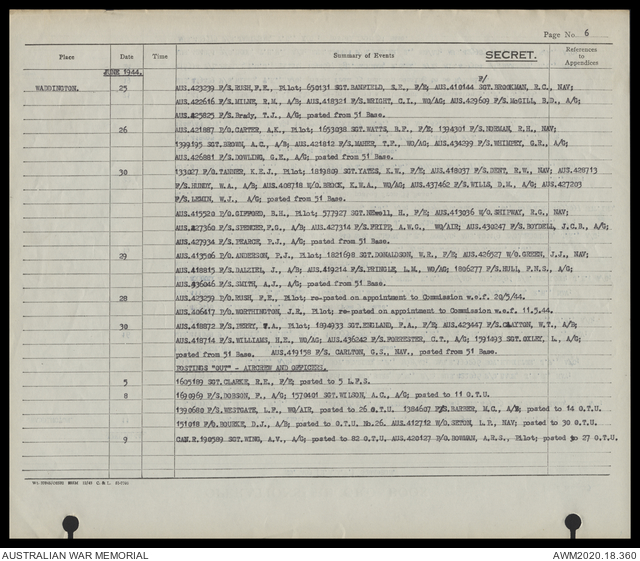 Page No. 6
Place Date Time Summary of Events SECRET. References to Appendices
JUNE 1944.
F/
WADDINGTON. 25 AUS.423239 F/S.RUSH,F.E., Pilot; 650131 SGT.BANFIELD, S.E., F/E; AUS.410144 SGT.BROOKMAN, R.C., NAV;
AUS.422616 F/S.MILNE, R.M., A/B; AUS.418321 F/S.WRIGHT, C.I., WO/AG; AUS.429609 F/S.McGILL, B.D., A/G;
AUS.425825 F/S.Brady, T.J., A/G; posted from 51 Base.
26 AUS.421887 P/O.CARTER, A.K., Pilot; 1653038 SGT.WATTS, B.F., F/E; 1394301 F/S.NORMAN, R.H., NAV;
1399195 SGT.BROWN, A.C., A/B; AUS.421812 F/S.MAHER, T.P., WO/AG; AUS.434299 F/S.WHIMPEY, G.R., A/G;
AUS.426881 F/S.DOWLING, G.E., A/G; posted from 51 Base.
30 133027 F/O.TANNER, K.E.J., Pilot; 1819809 SGT.YATES, K.W., F/E; AUS.418037 F/S.DENT, R.W., NAV; AUS.428713
F/S.HUNDY, W.A., A/B; AUS.408718 W/O.BROCK, K.W.A., WO/AG; AUS.437462 F/S.WILLS, D.M., A/G; AUS.427203
F/S.LEMIN, W.J., A/G; posted from 51 Base.
AUS.415320 P/O.GIFFORD, B.H., Pilot; 577927 SGT.NEwell, H., F/E; AUS.413036 W/O.SHIPWAY, R.G., NAV;
AUS.427360 F/S.SPENCER,F.G., A/B; AUS.427314 F/S.FRIPP, A.W.G., WO/AIR; AUS.430247 F/S.BOYDELL, J.C.B., A/G;
AUS.427934 F/S.PEARCE, P.J., A/G; posted from 51 Base.
29 AUS.413506 P/O.ANDERSON, P.J., Pilot; 1821698 SGT.DONALDSON, W.R., F/E; AUS.426527 W/O.GREEN, J.J., NAV;
AUS.418815 F/S.DALZIEL, J., A/B; AUS.419214 F/S.PRINGLE, L.M., WO/AG; 1806277 F/S.HULL, F.N.S., A/G;
AUS.436046 F/S.SMITH, A.J., A/G; posted from 51 Base.
28 AUS.423239 P/O.RUSH, F.E., Pilot; re-posted on appointment to Commission w.e.f. 20/5/44.
AUS.406417 P/O.WORTHINGTON, J.R., Pilot; re-posted on appointment to Commission w.e.f. 11.5.44.
30 AUS.418872 F/S.PERRY, W.A., Pilot; 1894933 SGT.ENGLAND, F.A., F/E; AUS.423447 F/S.CLAXTON, W.T., A/B;
AUS.418714 F/S.WILLIAMS, H.E., WO/AG; AUS.436242 F/S.FORRESTER, C.T., A/G; 1591493 SGT.OXLEY, L., A/G;
posted from 51 Base. AUS.419158 F/S. CARLTON, G.S., NAV., posted from 51 Base.
POSTINGS "OUT" - AIRCREW AND OFFICERS.
5 1605189 SGT.CLARKE, R.E., F/E; posted to 5 L.F.S.
8 1690969 F/S.DOBSON, F., A/G; 1570401 SGT.WILSON, A.G., A/G; posted to 11 O.T.U.
1390680 F/S.WESTGATE, L.F., WO/AIR, posted to 26 O.T.U. 1384607 F/S.BARBER, M.C., A/B; posted to 14 O.T.U
151018 F/O.ROURKE, D.J., A/B; posted to O.T.U. No.26. AUS.412712 W/O.SETON, L.P., NAV; posted to 30 O.T.U
9 CAN.R.190389 SGT.WING, A.V., A/G; posted to 82 O.T.U. AUS.420127 P/O.BOWMAN, A.R.S., Pilot; posted to 27 O.T.U.
AUSTRALIAN WAR MEMORIAL AWM2020.18.360